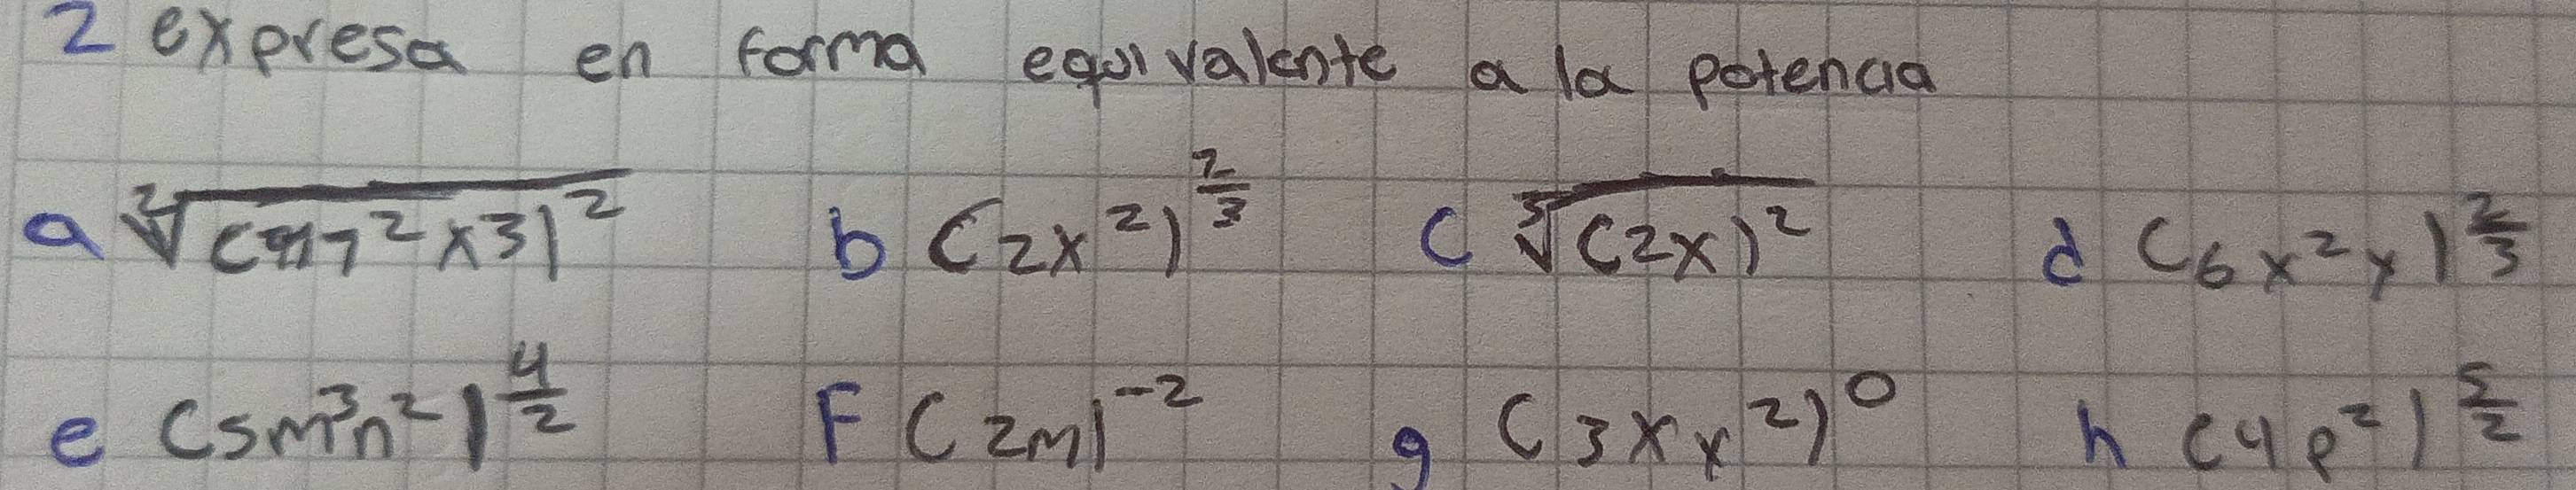 2 expresa en forma equivalente a la potencia
a ∛(m²x3)² b (2x²)^(2/3) c ∛(2x)² d (6x²y)^(2/3)
e (5m³n²)^(4/2) F (2m)⁻² g (3xy²)⁰ h (4p²)^(5/2)